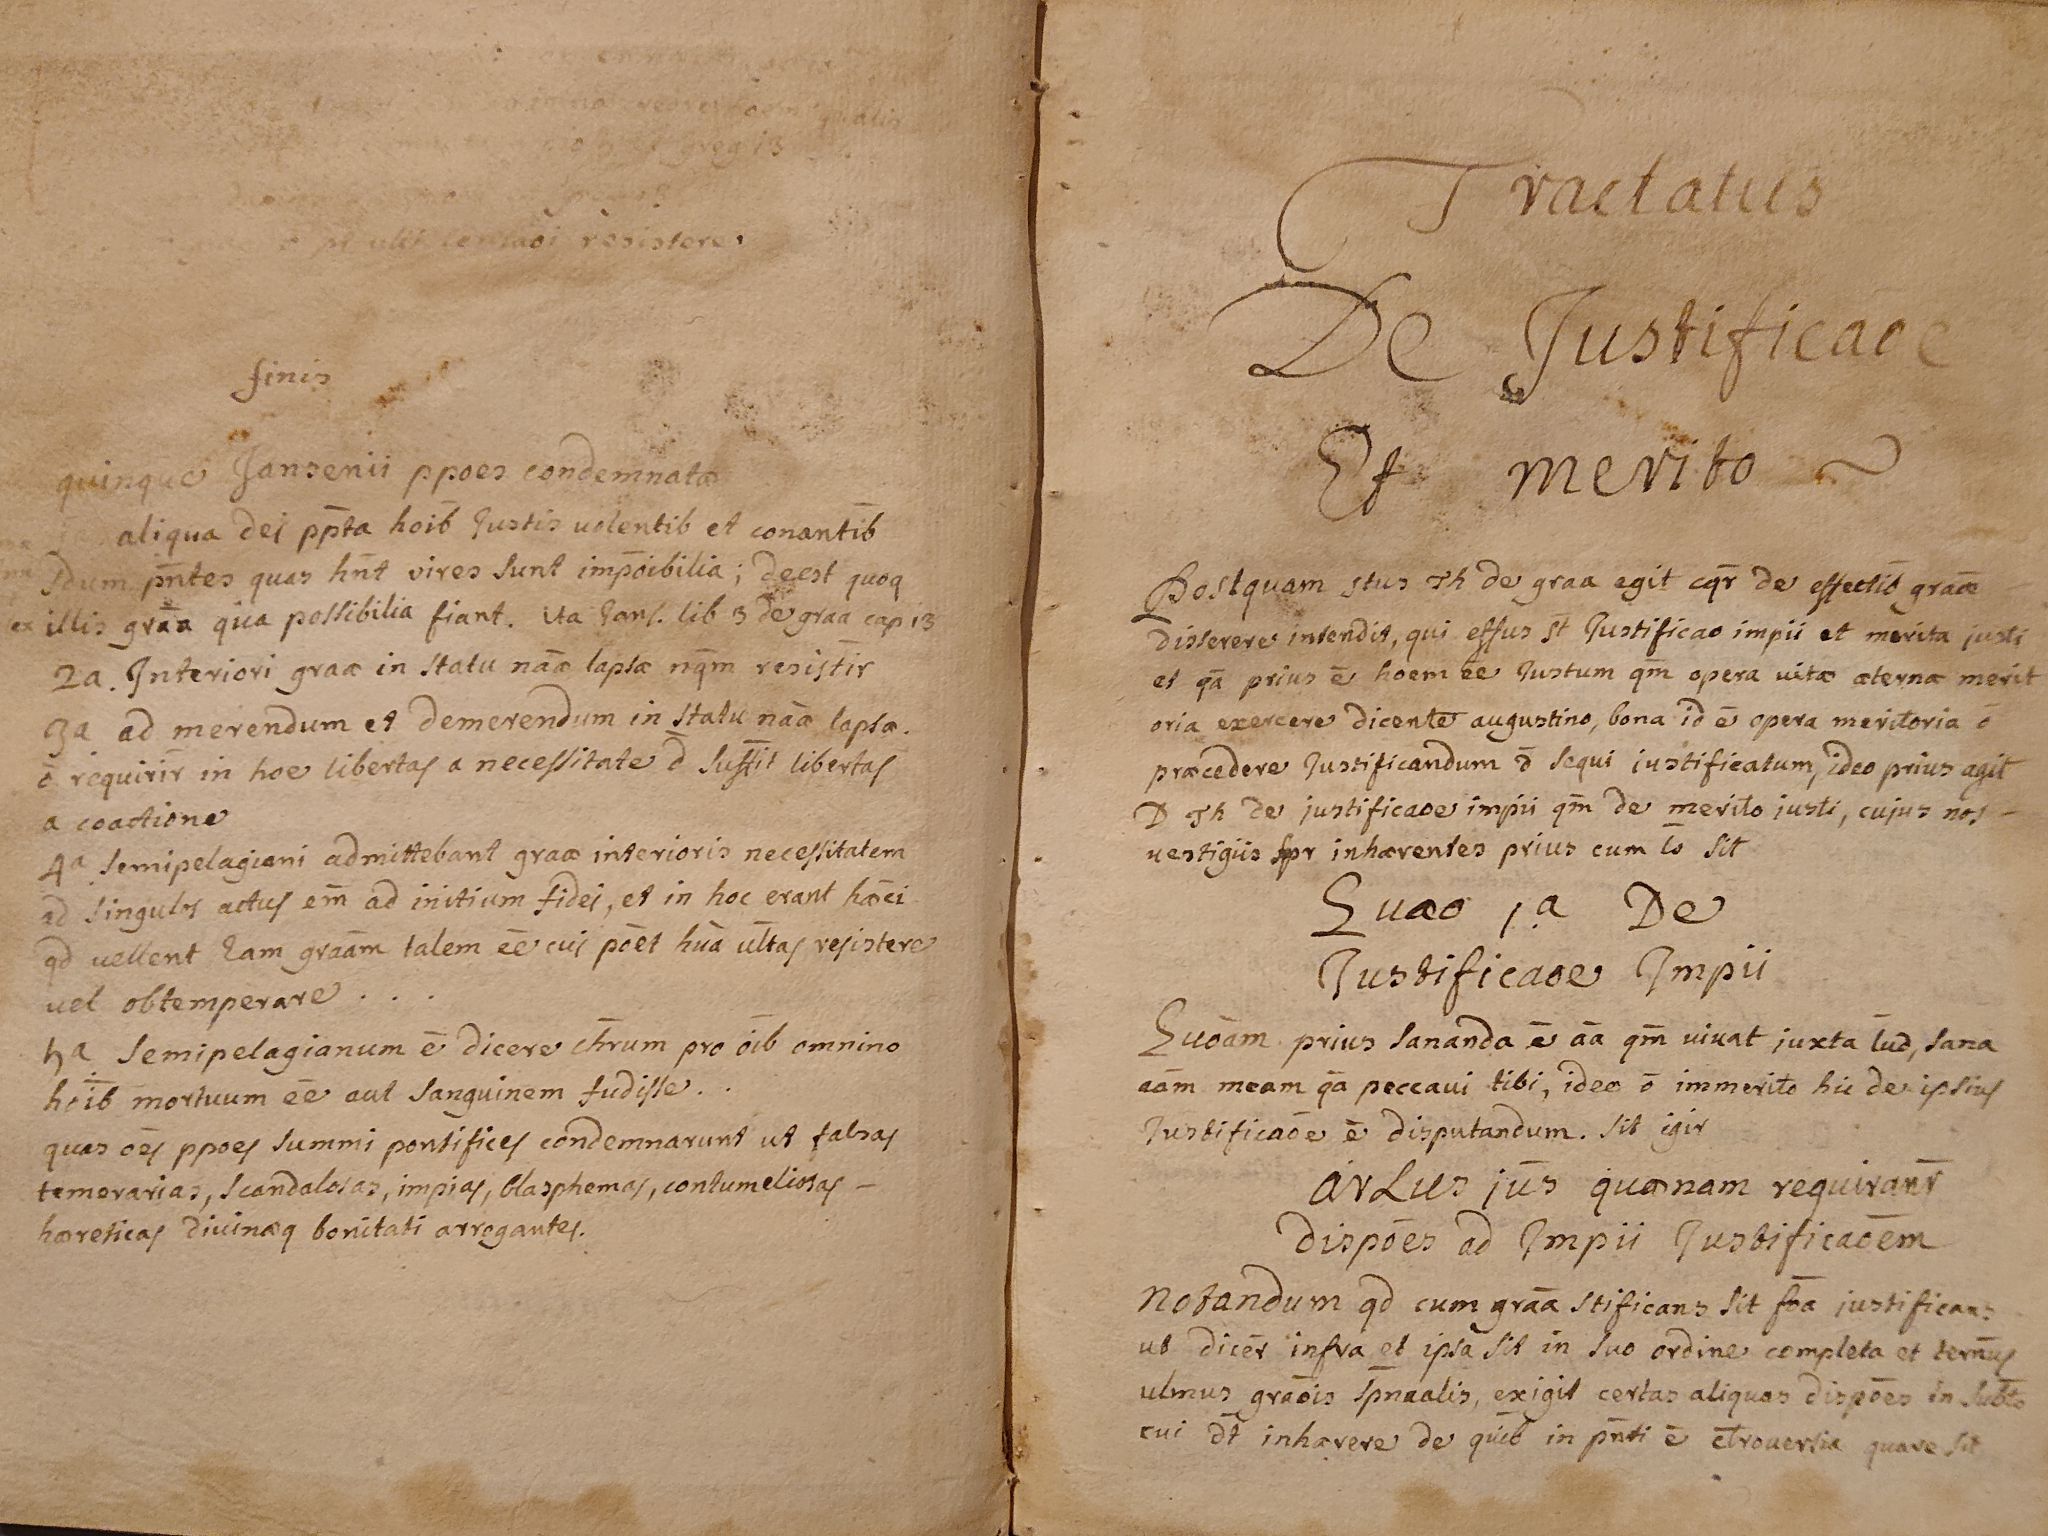 resistere.
finis
quinque Jansenii ppoes condemnatæ
aliqua dei pp̄ta hoib̄ Justis volentib et conantib̄
sdum p̄ntes quas hn̄t vires sunt impōibilia; deest quoq
illis grāa qua possibilia fiant. ita Jans. lib 3 de graa cap 13
2a. Interiori graæ in statu nāæ lapsæ nqm̄ resistir̄
3a ad merendum et demerendum in statu nāæ lapsæ.
ō requirir̄ in hoe libertas a necessitate d̄ suffit libertas
a coactione
4a semipelagiani admittebant graæ interioris necessitatem
ad singulos actus em̄ ad initium fidei, et in hoc erant hǣci
qd vellent Eam grāam talem ēe cui pōet hūa ul̄tas resistere
vel obtemperare . . .
5a semipelagianum ē dicere chr̄um pro ōib omnino
hōib mortuum ēe aut sanguinem fudisse. .
quas ōes ppoes summi pontifices condemnarunt ut falsas
temerarias, scandalosas, impias, blasphemas, contumeliosas –
hæreticas divinæq bonitati arrogantes.
Tractatus
De Justificaoe
Et merito ~
Postquam stus Th de graa egit cqr̄ de effectib̄ grāæ
disserere intendit, qui effus st̄ Justificao impii et merita justi
et qā prius ē hoem ēe Justum qm̄ opera vitæ æternæ merit
oria exercere dicente augustino, bona id ē opera meritoria ō
præcedere Justificandum d̄ sequi justificatum, ideo prius agit
D Th de justificaoe impii qm̄ de merito justi, cujus nos –
vestigiis spr inhærentes prius cum lō sit
Quæo 1.a De
Justificaoe Impii
Quōam prius sananda ē āa qm̄ vivat juxta l̄ud, sana
aām meam qā peccavi tibi, ideo ō immerito hic de ipsius
Justificaōe ē disputandum. sit igir
arLus jūs quænam requiranr̄
dispōes ad Impii Justificaōem
Notandum qd cum grāa stificans sit fōa justificans
ut dicer̄ infra et ipsa sit in suo ordine completa et tern̄us
ulmus graōis spn̄aalis, exigit certas aliquas dispōes in sub̄to
cui dt̄ inhærere de quib̄ in pn̄ti ē c̄troversia quare sit